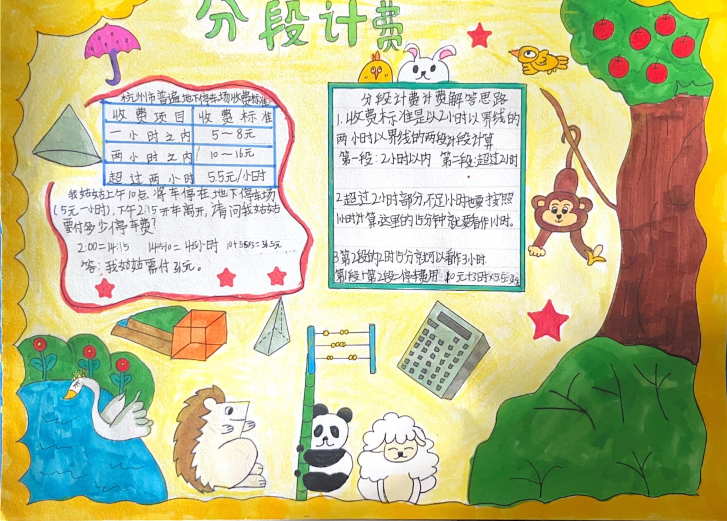 分段计费
杭州市普遍地下停车场收费标准
收费项目 收费标准
一小时之内 5~8元
两小时之内 10~16元
超过两小时 5.5元/小时
我姑姑上午10点将车停在地下停车场
(5元一小时),下午2:15开车离开,请问我姑姑
要付多少停车费?
2:00=14:15
答:我姑姑需付 元。
分段计费计费解答思路
1.收费标准是以2小时以界线的
两小时以界线的两段计段计算
第一段:2小时以内 第二段:超过2小时
2.超过2小时部分不足1小时也要按照
1小时计算这里的15分钟就要看作1小时。
3第2段的2时15分就可以看作3小时
第1段+第2段=停车费用 10元+3时×5.5